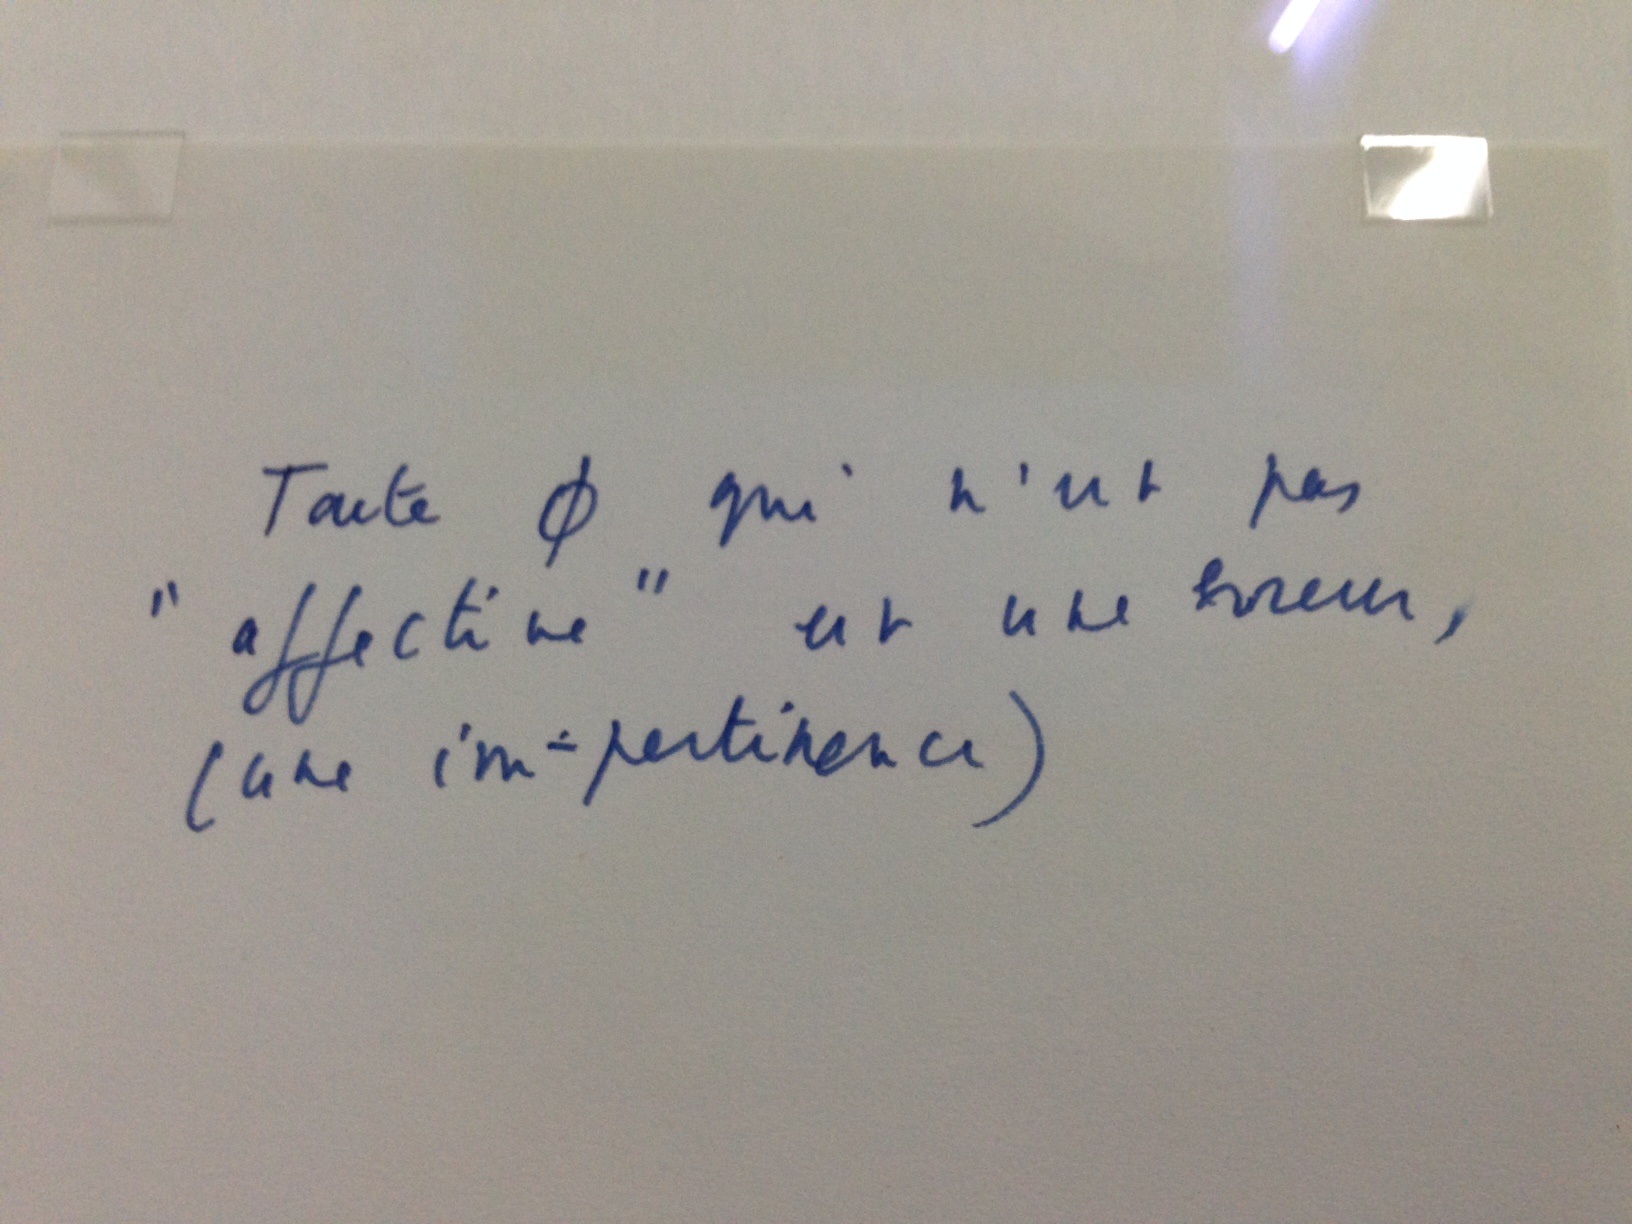 Toute ϕ qui n'est pas
"affective" est une erreur,
(une im-pertinence)